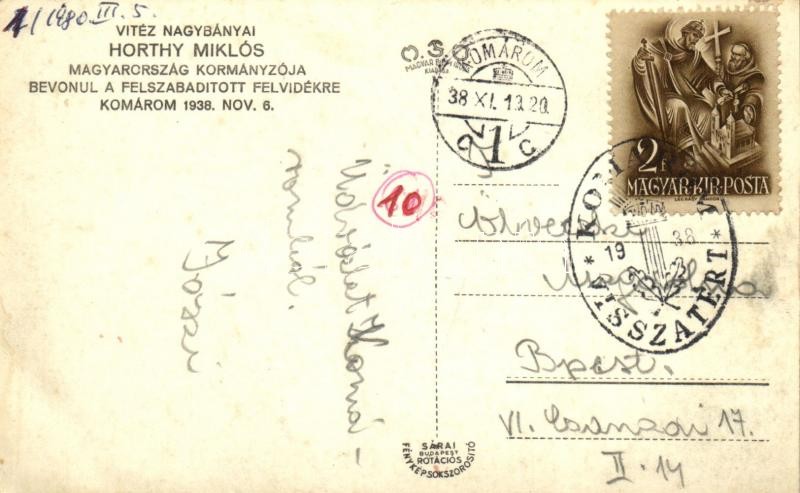 1/1980.III.5.
VITÉZ NAGYBÁNYAI
HORTHY MIKLÓS
MAGYARORSZÁG KORMÁNYZÓJA
BEVONUL A FELSZABADITOTT FELVIDÉKRE
KOMÁROM 1938. NOV. 6.
KOMÁROM
38 XI. 13. 20.
1 C
2 f
MAGYAR·KIR·POSTA
KOMÁROM
19 38
* VISSZATÉRT *
10
Üdvözlet Komá-
romból.
Józsi
Bpest.
VI. 17.
II. 14
SÁRAI
BUDAPEST
ROTÁCIÓS
FÉNYKÉPSOKSZOROSITÓ